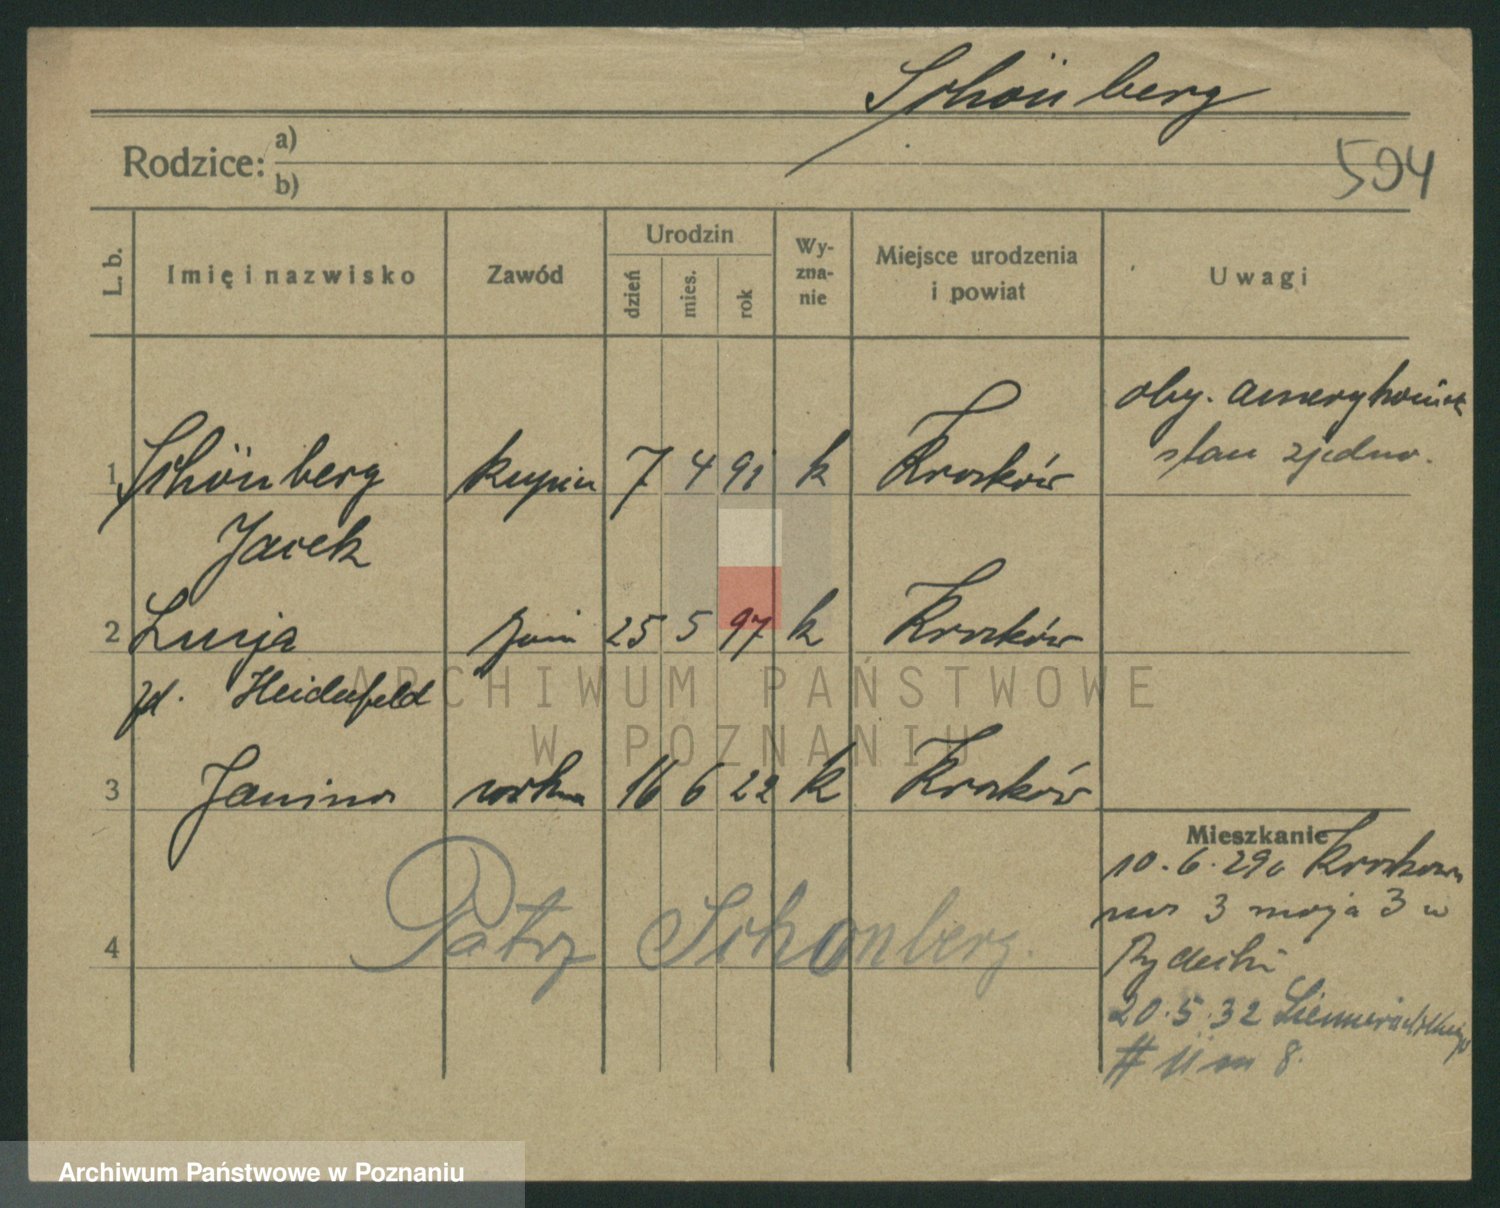 Schönberg
Rodzice: a)
b)
594
L. b. Imię i nazwisko Zawód Urodzin dzień mies. rok Wy-zna-nie Miejsce urodzenia i powiat Uwagi
oby. amerykańsk
stan zjedno.
1 Schönberg kupiec 7 4 91 k Kraków
Jacek
2 Lucja 25 5 97 k Kraków
zd. Heidenfeld
ARCHIWUM PAŃSTWOWE
W POZNANIU
3 Janina 16 6 22 k Kraków
Mieszkanie
10.6.29 Krakowa
3 maja 3 w
4 Patrz Schonberg.
20.5.32
# 11 m 8.
Archiwum Państwowe w Poznaniu